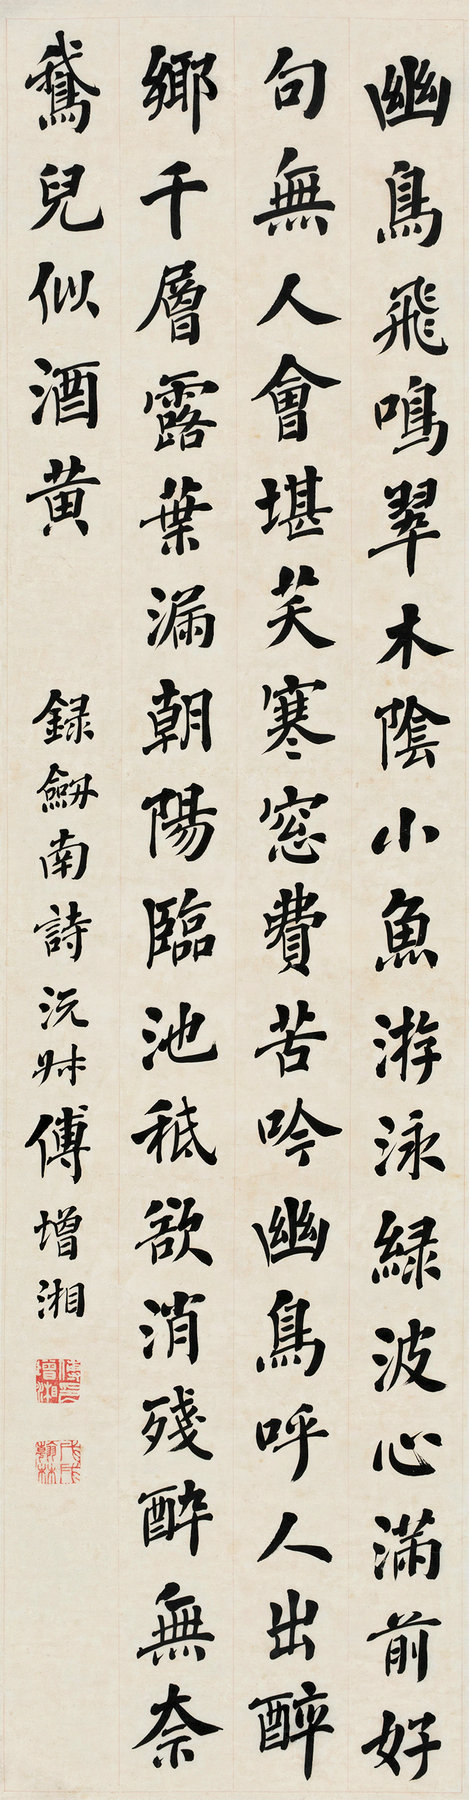 幽鳥飛鳴翠木陰小魚游泳綠波心滿前好
句無人會堪笑寒窓費苦吟幽鳥呼人出醉
鄉千層露葉漏朝陽臨池秪欲消殘醉無奈
鵞兒似酒黃
錄劔南詩沅叔傅增湘
傅增湘印
戊戌翰林